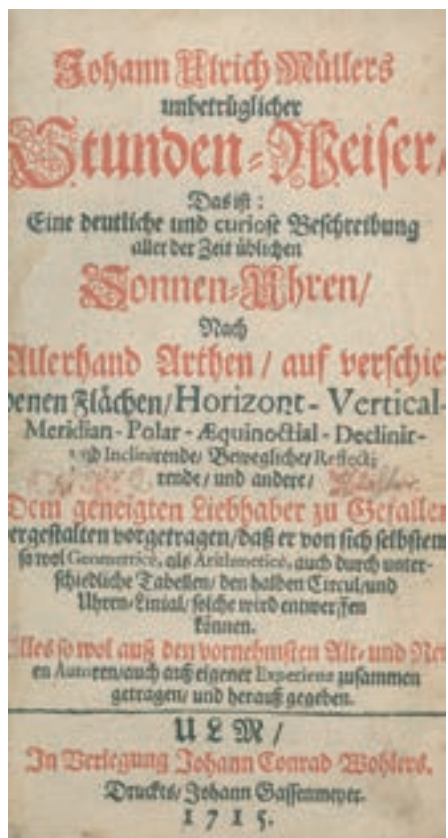 Johann Ulrich Müllers
unbetrüglicher
Stunden-Weiser,
Das ist:
Eine deutliche und curiose Beschreibung
aller der Zeit üblichen
Sonnen-Uhren/
Nach
Allerhand Arthen / auf verschie-
denen Flächen/Horizont-Vertical-
Meridian-Polar-Æquinoctial-Declinir-
und Inclinirende/ Bewegliche/ Reflecti-
rende/ und andere/
Dem geneigten Liebhaber zu Gefallen
dergestalten vorgetragen/ daß er von sich selbsten
so wol Geometricè, als Arithmeticè, auch durch unter-
schiedliche Tabellen/ den halben Circul/und
Uhren-Linial/ solche wird entwerffen
können.
Alles so wol auß den vornehmsten Alt- und Neu-
en Autoren/auch auß eigener Experienz zusammen
getragen/ und herauß gegeben.
ULM/
In Verlegung Johann Conrad Wohlers.
Druckts/ Johann Gassenmeyer.
1715.